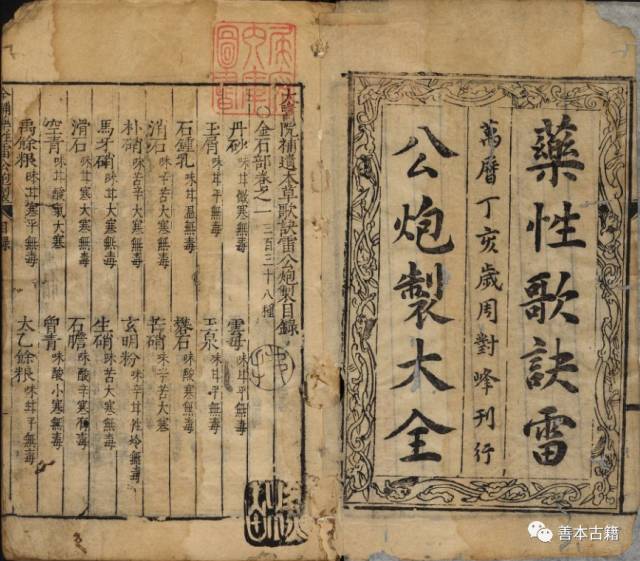 藥性歌訣雷
萬曆丁亥歲周對峰刊行
公炮製大全
太醫院補遺本草歌訣雷公炮製目錄
金石部卷之一 三百三十八種
丹砂 味甘微寒無毒 雲母 味甘平無毒
玉屑 味甘平無毒 玉泉 味甘平無毒
石鍾乳 味甘溫無毒 礬石 味酸寒無毒
消石 味辛苦大寒無毒 芒硝 味辛苦大寒無毒
朴硝 味苦辛大寒無毒 玄明粉 味辛甘性冷無毒
馬牙硝 味甘大寒無毒 生硝 味苦大寒無毒
滑石 味甘寒大寒無毒 石膽 味酸辛寒有毒
空青 味甘酸寒大寒無毒 曾青 味酸小寒無毒
禹餘粮 味甘寒平無毒 太乙餘粮 味甘平無毒
目錄
善本古籍